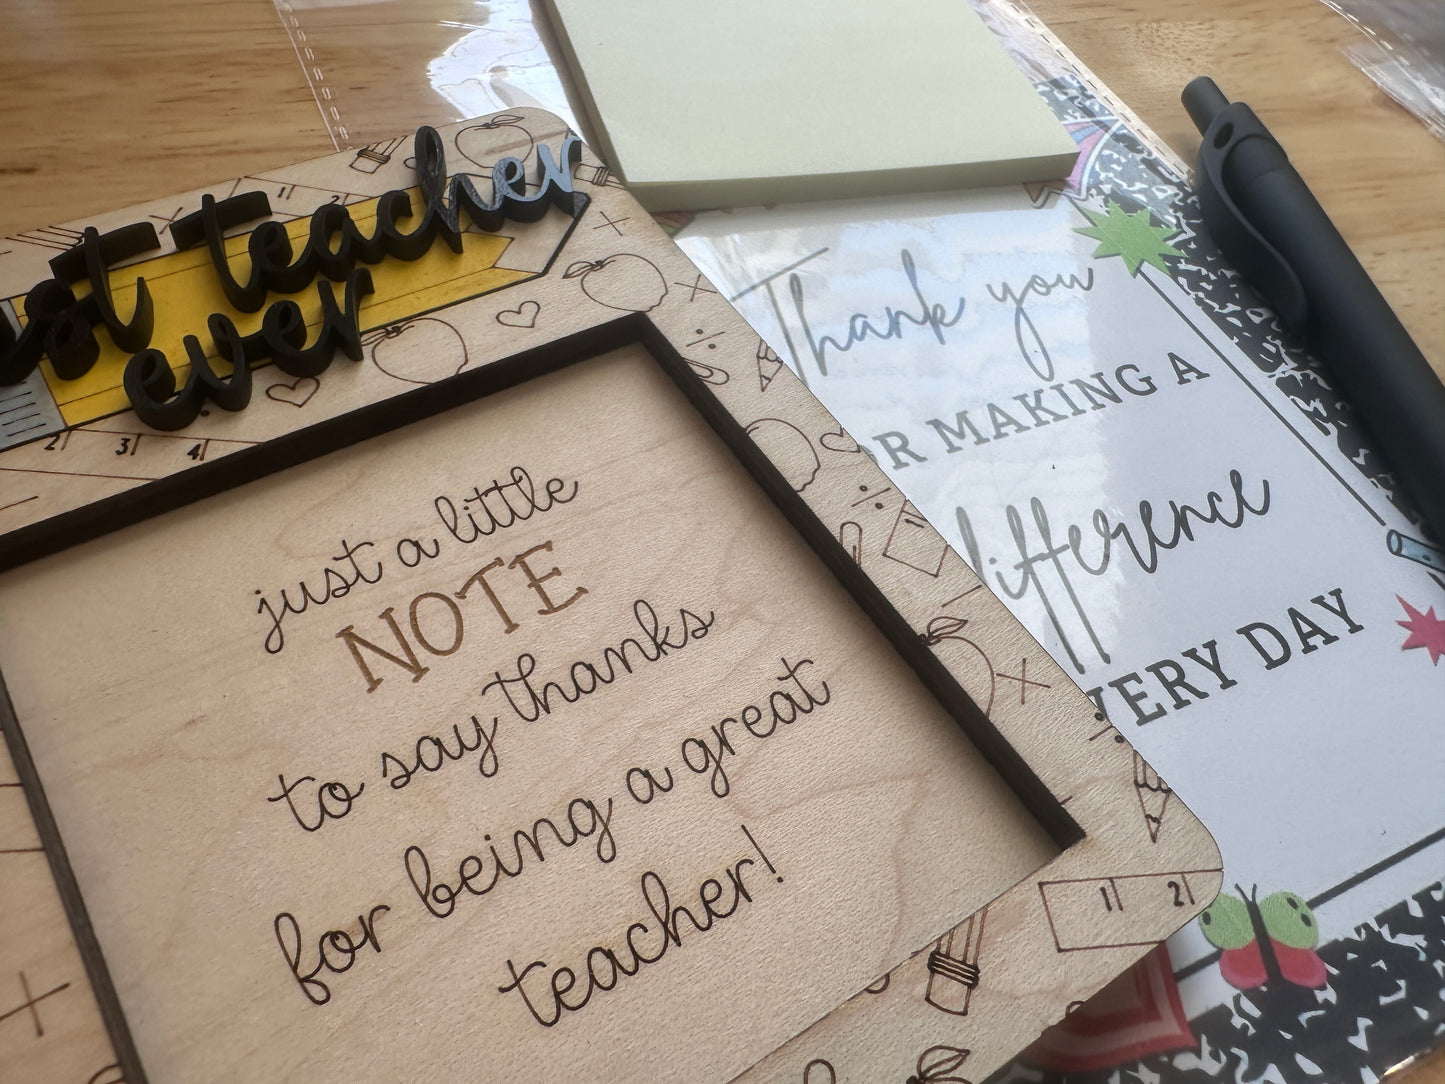 teacher
ever
2 3 4
just a little
NOTE
to say thanks
for being a great
teacher!
1 2
Thank you
MAKING A
EVERY DAY